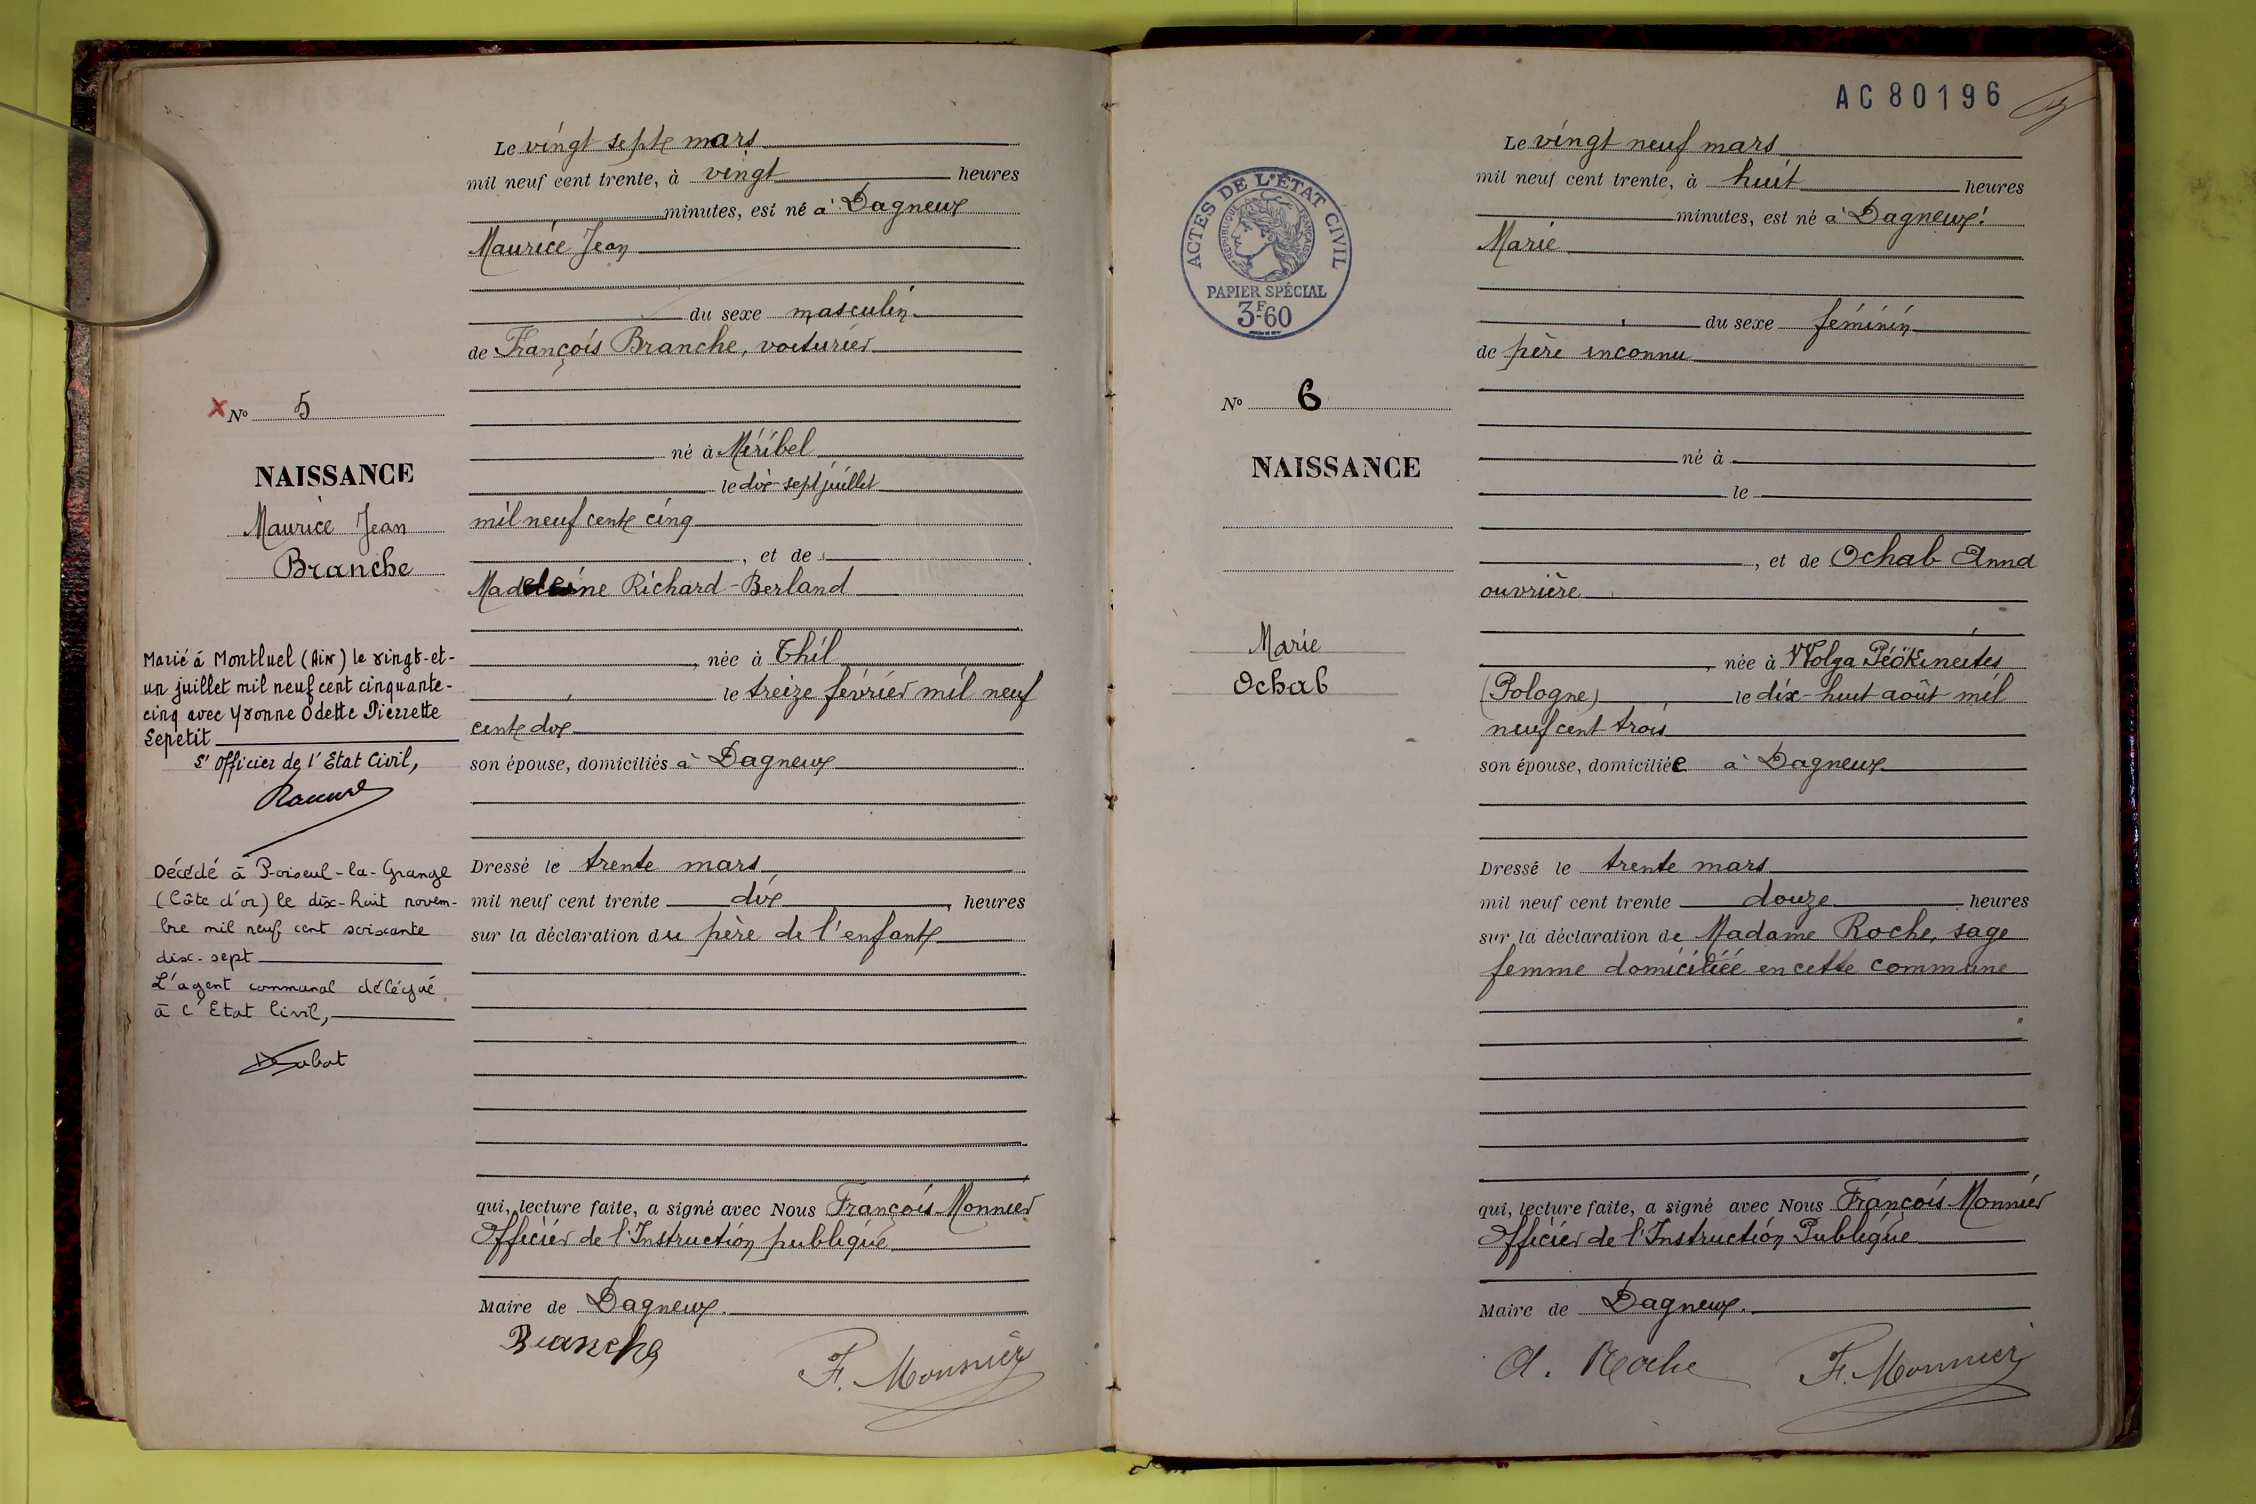 Le vingt sept mars
mil neuf cent trente, à vingt heures
minutes, est né à Dagneux
Maurice Jean
du sexe masculin
de François Branche, voiturier
X No 5
né à Miribel
NAISSANCE
le dix-sept juillet
Maurice Jean
mil neuf cent cinq
Branche
, et de
Madeleine Richard-Berland
, née à Thil
le treize février mil neuf
cent dix
son épouse, domiciliés à Dagneux
Marié à Montluel (Ain) le vingt-et-
un juillet mil neuf cent cinquante-
cinq avec Yvonne Odette Pierrette
Lepetit
L'officier de l'Etat Civil,
Décédé à Poiseul-la-Grange
(Côte d'or) le dix-huit novem-
bre mil neuf cent soixante
dix-sept
L'agent communal délégué
à l'Etat Civil,
Dressé le trente mars
mil neuf cent trente dix heures
sur la déclaration du père de l'enfant
qui, lecture faite, a signé avec Nous François Monnier
Officier de l'Instruction publique
Maire de Dagneux.
Branche
F. Monnier
AC80196
Le vingt neuf mars
mil neuf cent trente, à huit heures
minutes, est né à Dagneux.
Marie
ACTES DE L'ÉTAT CIVIL
RÉPUBLIQUE FRANÇAISE
PAPIER SPÉCIAL
3F60
du sexe féminin
de père inconnu
No 6
né à
NAISSANCE
le
, et de Ochab Anna
ouvrière
Marie
Ochab
, née à Wolga Péökineites
(Pologne) le dix-huit août mil
neuf cent trois
son épouse, domiciliée à Dagneux
Dressé le trente mars
mil neuf cent trente douze heures
sur la déclaration de Madame Roche, sage
femme domiciliée en cette commune
qui, lecture faite, a signé avec Nous François Monnier
Officier de l'Instruction Publique
Maire de Dagneux.
A. Roche
F. Monnier